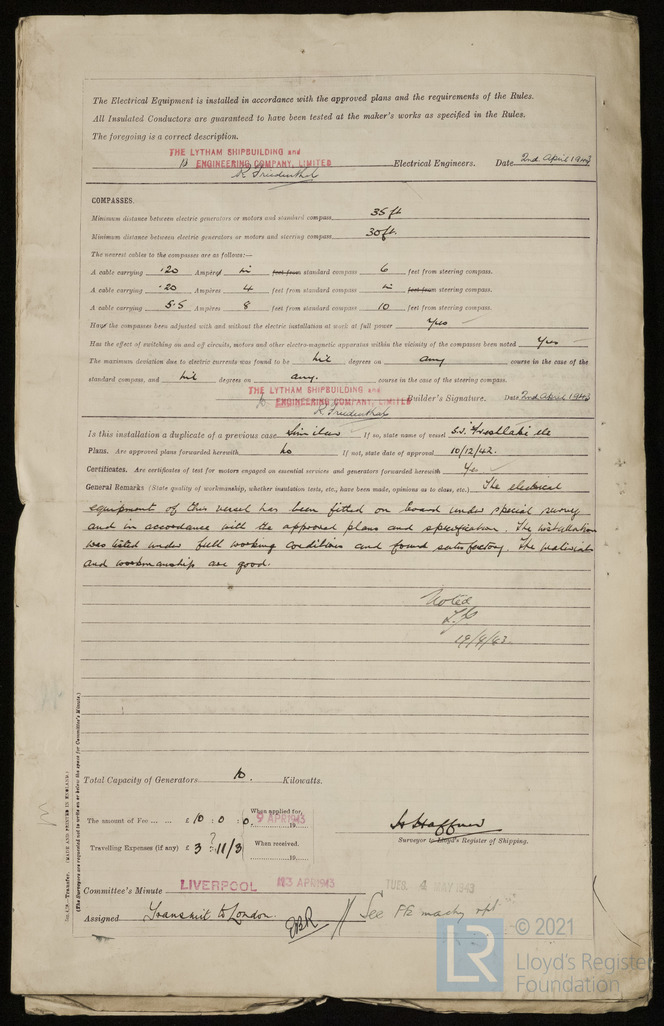 The Electrical Equipment is installed in accordance with the approved plans and the requirements of the Rules.
All Insulated Conductors are guaranteed to have been tested at the maker's works as specified in the Rules.
The foregoing is a correct description.
THE LYTHAM SHIPBUILDING and
ENGINEERING COMPANY, LIMITED Electrical Engineers. Date 2nd April 1943
COMPASSES.
Minimum distance between electric generators or motors and standard compass 35 ft
Minimum distance between electric generators or motors and steering compass 30 ft.
The nearest cables to the compasses are as follows:—
A cable carrying .20 Ampères in feet from standard compass 6 feet from steering compass.
A cable carrying .20 Ampères 4 feet from standard compass in feet from steering compass.
A cable carrying 5.5 Ampères 8 feet from standard compass 10 feet from steering compass.
Have the compasses been adjusted with and without the electric installation at work at full power Yes
Has the effect of switching on and off circuits, motors and other electro-magnetic apparatus within the vicinity of the compasses been noted Yes
The maximum deviation due to electric currents was found to be nil degrees on any course in the case of the
standard compass, and nil degrees on any. course in the case of the steering compass.
THE LYTHAM SHIPBUILDING and
ENGINEERING COMPANY, LIMITED Builder's Signature. Date 2nd April 1943
Is this installation a duplicate of a previous case Similar If so, state name of vessel S.S.
Plans. Are approved plans forwarded herewith no If not, state date of approval 10/12/42.
Certificates. Are certificates of test for motors engaged on essential services and generators forwarded herewith Yes
General Remarks (State quality of workmanship, whether insulation tests, etc., have been made, opinions as to class, etc.) The electrical
equipment of this vessel has been fitted on board under special survey
and in accordance with the approved plans and specification. The installation
was tested under full working conditions and found satisfactory. The materials
and workmanship are good.
Noted
19/4/43.
Total Capacity of Generators 10. Kilowatts.
The amount of Fee ... ... £ 10 : 0 : 0. When applied for, 9 APR 1943 19
Travelling Expenses (if any) £ 3 : 11/3 When received. 19
Surveyor to Lloyd's Register of Shipping.
Committee's Minute LIVERPOOL 13 APR 1943 TUES. 4 MAY 1943
Assigned Transmit to London. See FE machy rpt.
(The Surveyors are requested not to write on or below the space for Committee's Minute.)
Transfer. (MADE AND PRINTED IN ENGLAND.)
LR © 2021
Lloyd's Register
Foundation